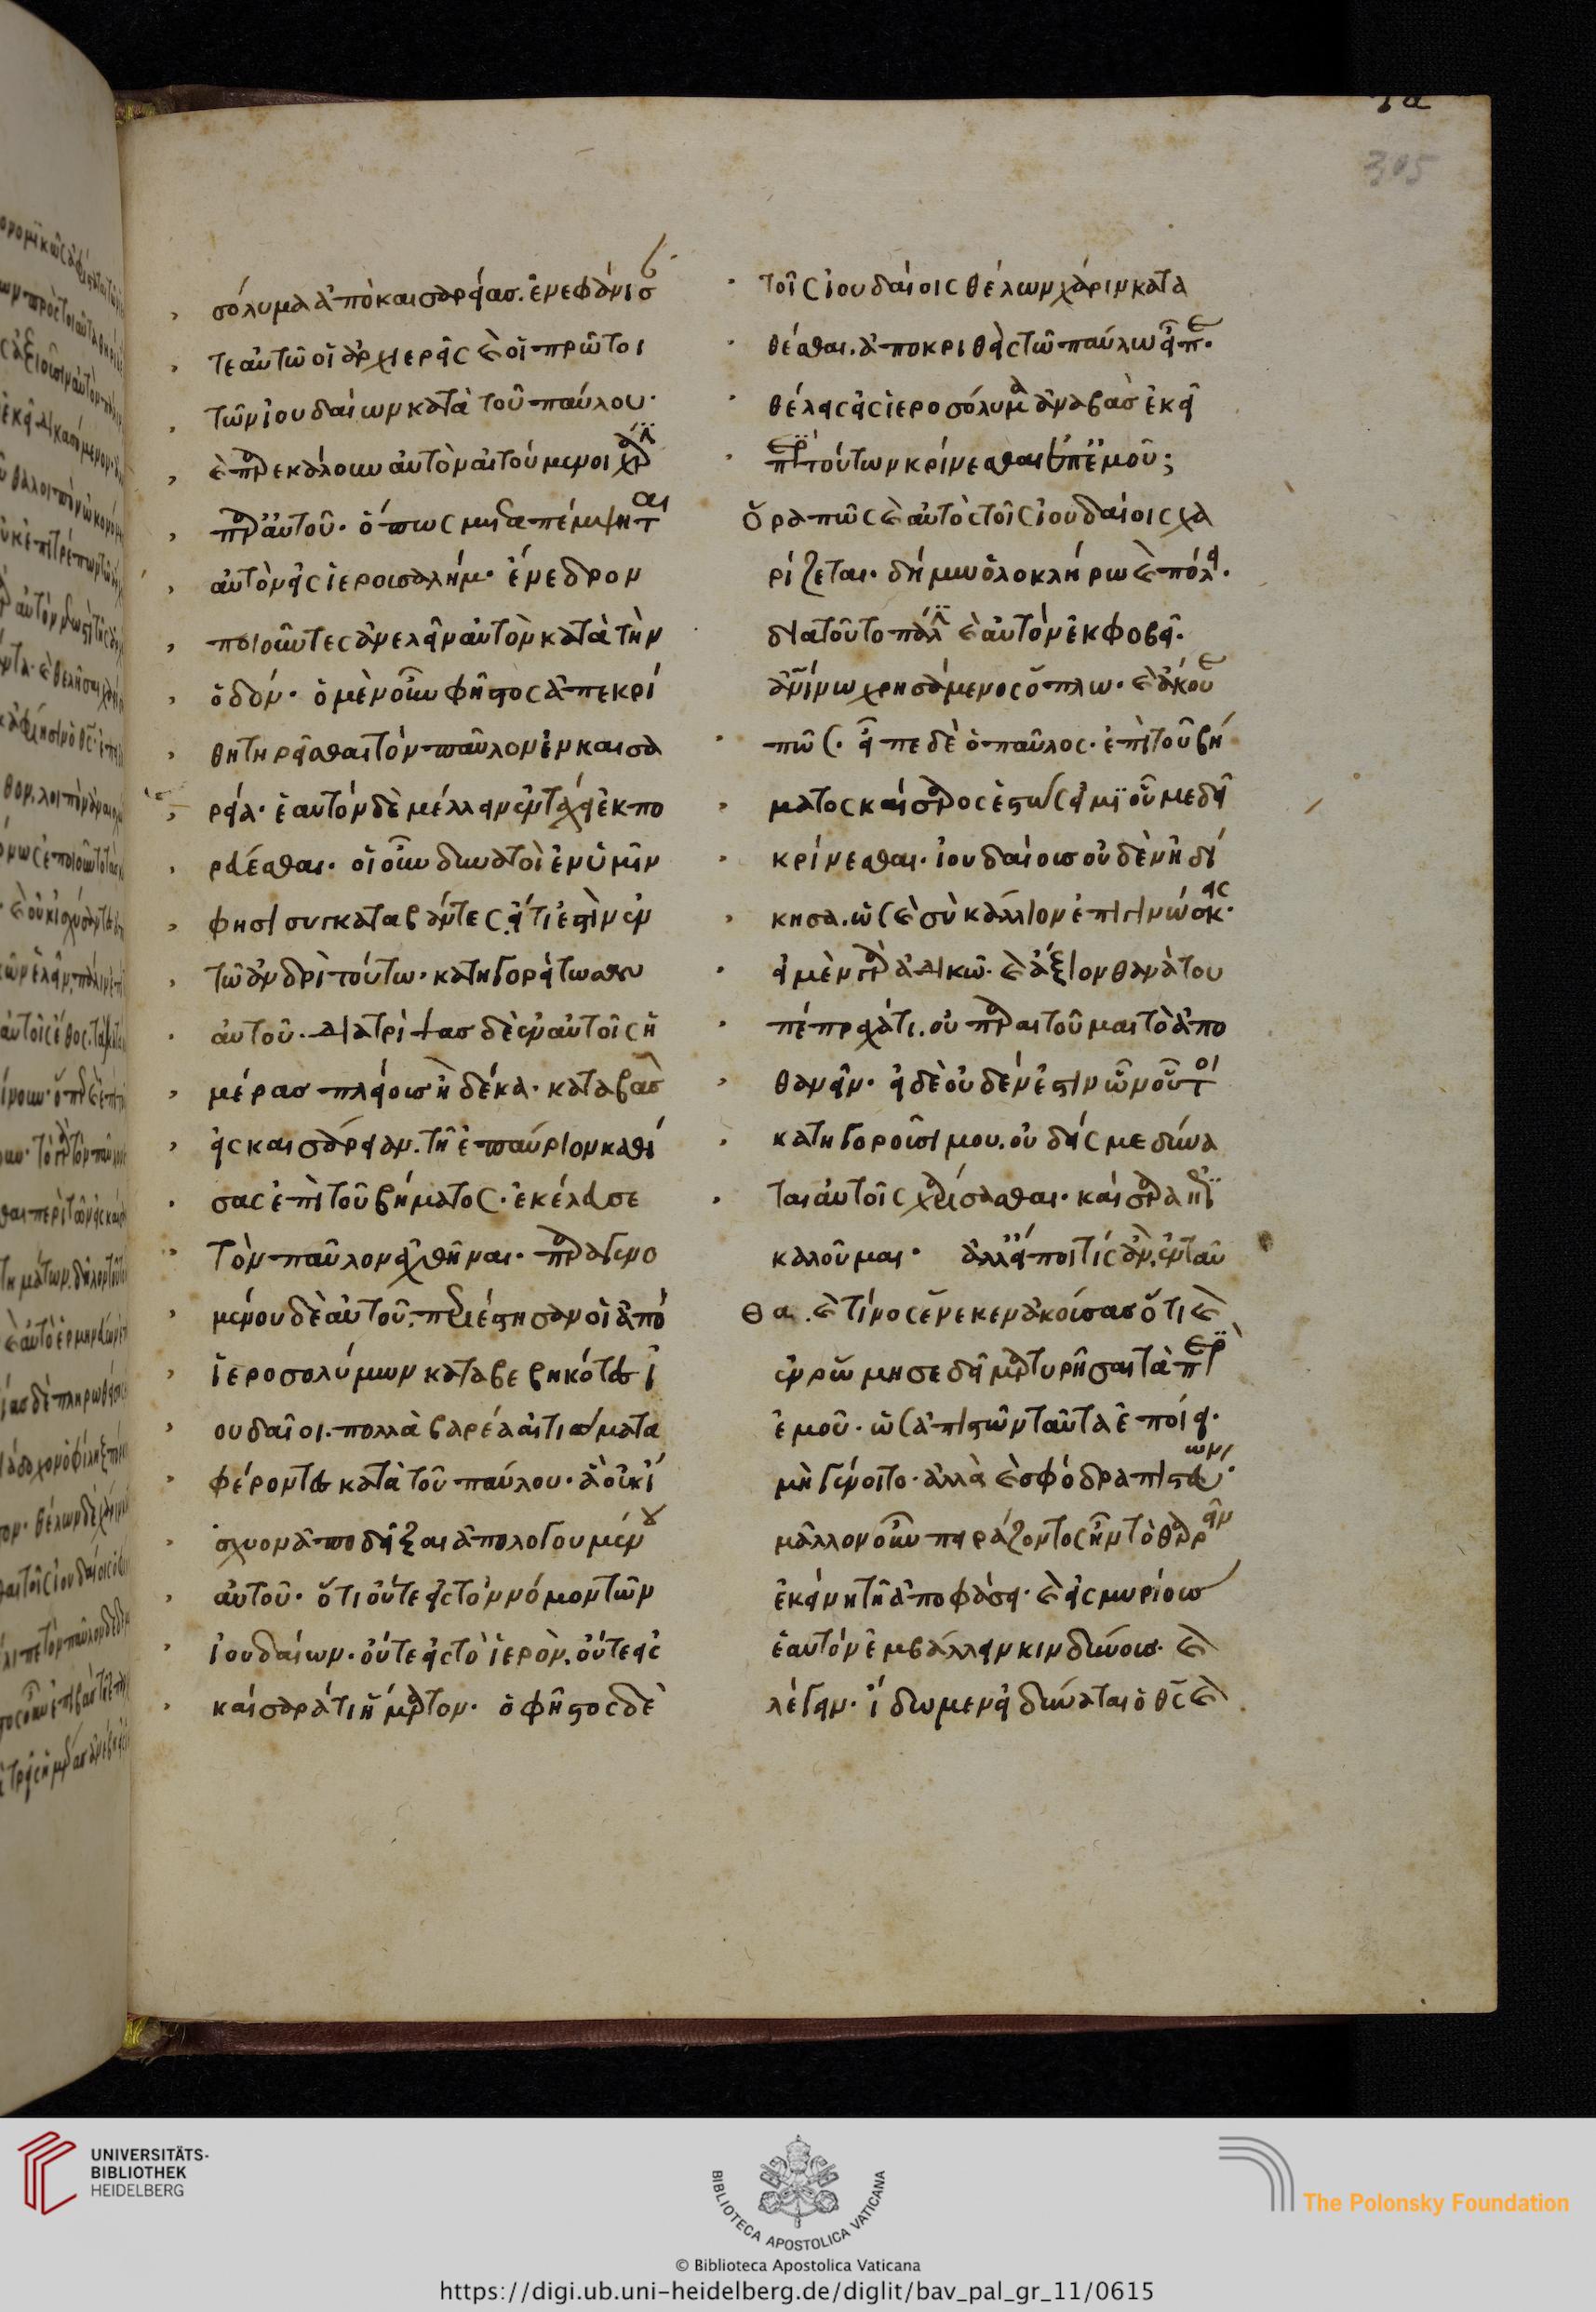 305
σόλυμα ἀπὸ καισαρείας. ἐνεφάνισ
τε αὐτῶ οἱ ἀρχιερεῖς καὶ οἱ πρῶτοι
τῶν ἰουδαίων κατὰ τοῦ παύλου·
καὶ παρεκάλουν αὐτὸν αἰτούμενοι χάρ
παρ' αὐτοῦ· ὅπως μεταπέμψηται
αὐτὸν εἰς ἱερουσαλήμ· ἐνέδραν
ποιοῦντες ἀνελεῖν αὐτὸν κατὰ τὴν
ὁδόν· ὁ μὲν οὖν φῆστος ἀπεκρί
θη τηρεῖσθαι τὸν παῦλον ἐν καισα
ρεία· ἑαυτὸν δὲ μέλλειν ἐν τάχει ἐκπο
ρεύεσθαι· οἱ οὖν δυνατοὶ ἐν ὑμῖν
φησὶ συγκαταβάντες εἴ τι ἐστὶν ἐν
τῶ ἀνδρὶ τούτω· κατηγορείτωσαν
αὐτοῦ· διατρίψας δὲ ἐν αὐτοῖς ἡ
μέρας πλείους ἢ δέκα· καταβὰς
εἰς καισάρειαν· τῆ ἐπαύριον καθί
σας ἐπὶ τοῦ βήματος· ἐκέλευσε
τὸν παῦλον ἀχθῆναι· παραγενο
μένου δὲ αὐτοῦ· περιέστησαν οἱ ἀπὸ
ἱεροσολύμων καταβεβηκότες ἰ
ουδαῖοι· πολλὰ βαρέα αἰτιάματα
φέροντες κατὰ τοῦ παύλου· ἃ οὐκ ἴ
σχυον ἀποδεῖξαι ἀπολογουμένου
αὐτοῦ· ὅτι οὔτε εἰς τὸν νόμον τῶν
ἰουδαίων· οὔτε εἰς τὸ ἱερὸν· οὔτε εἰς
καίσαρά τι ἥμαρτον· ὁ φῆστος δὲ
τοῖς ἰουδαίοις θέλων χάριν κατα
θέσθαι· ἀποκριθεὶς τῶ παύλω εἶπε·
θέλεις εἰς ἱεροσόλυμα ἀναβὰς ἐκεῖ
περὶ τούτων κρίνεσθαι ἐπ' ἐμοῦ;
ὅρα πῶς καὶ αὐτὸς τοῖς ἰουδαίοις χα
ρίζεται· δήμω ὁλοκλήρω καὶ πόλει·
διατοῦτο πάλιν καὶ αὐτὸν ἐκφοβεῖ·
ἀνθρωπίνω χρησάμενος ὅπλω· καὶ ἄκουε
πῶς· εἶπε δὲ ὁ παῦλος· ἐπὶ τοῦ βή
ματος καίσαρος ἑστώς εἰμι οὗ με δεῖ
κρίνεσθαι· ἰουδαίους οὐδὲν ἠδί
κησα· ὡς καὶ σὺ κάλλιον ἐπιγινώσκεις·
εἰ μὲν γὰρ ἀδικῶ· καὶ ἄξιον θανάτου
πέπραχά τι· οὐ παραιτοῦμαι τὸ ἀπο
θανεῖν· εἰ δὲ οὐδέν ἐστιν ὧν οὗτοι
κατηγοροῦσί μου· οὐδείς με δύνα
ται αὐτοῖς χαρίσασθαι· καίσαρα ἐπι
καλοῦμαι· ἀλλ' εἴποι τίς ἂν· ἐνταῦ
θα· καὶ τίνος ἕνεκεν ἀκούσας ὅτι καὶ
ἐν ρώμη σε δεῖ μαρτυρῆσαι τὰ περὶ
ἐμοῦ· ὡς ἀπιστῶν ταῦτα ἐποίει·
μὴ γένοιτο· ἀλλὰ καὶ σφόδρα πιστεύων·
μᾶλλον οὖν πειράζοντος ἦν τὸ θαρρεῖν
ἐκείνη τῆ ἀποφάσει· καὶ εἰς μυρίους
ἑαυτὸν ἐμβάλλειν κινδύνους· καὶ
λέγειν· ἴδωμεν εἰ δύναται ὁ θς καὶ
UNIVERSITÄTS-
BIBLIOTHEK
HEIDELBERG
BIBLIOTECA APOSTOLICA VATICANA
The Polonsky Foundation
© Biblioteca Apostolica Vaticana
https://digi.ub.uni-heidelberg.de/diglit/bav_pal_gr_11/0615